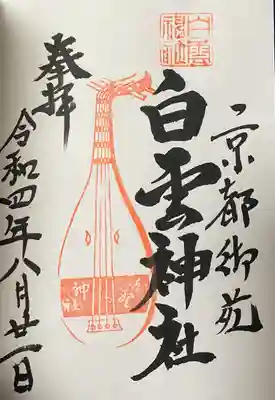 京都御苑
白雲
神社
白雲神社
白雲
神社
奉拝
令和四年八月廿二日